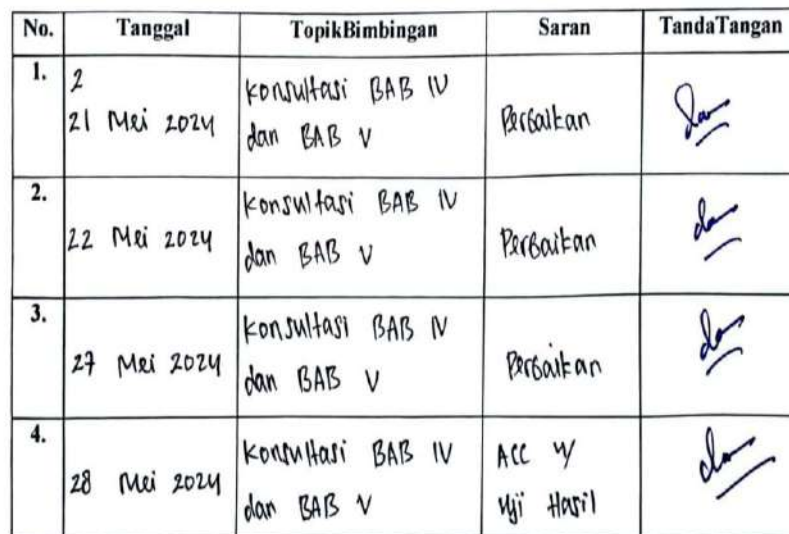 No. Tanggal TopikBimbingan Saran TandaTangan
1. 2
21 Mei 2024 konsultasi BAB IV dan BAB V Perbaikan
2. 22 Mei 2024 konsultasi BAB IV dan BAB V Perbaikan
3. 27 Mei 2024 konsultasi BAB IV dan BAB V Perbaikan
4. 28 Mei 2024 konsultasi BAB IV dan BAB V ACC u/ Uji Hasil